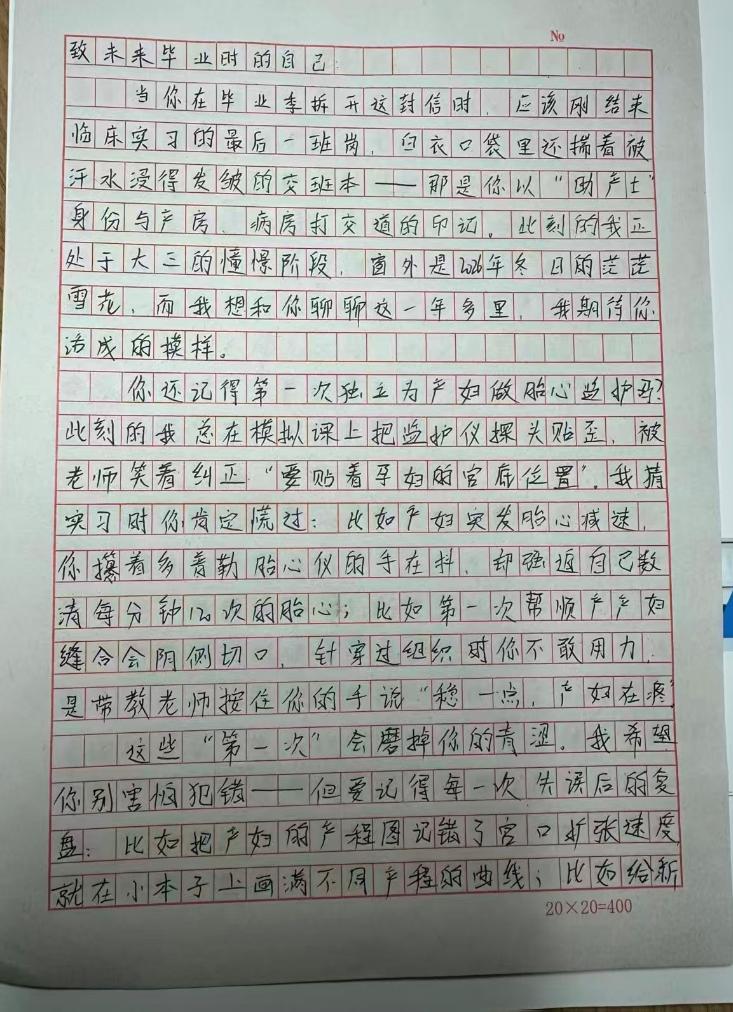 No
致未来毕业时的自己：
当你在毕业季拆开这封信时，应该刚结束
临床实习的最后一班岗，白衣口袋里还揣着被
汗水浸得发皱的交班本——那是你以“助产士”
身份与产房、病房打交道的印记。此刻的我正
处于大三的憧憬阶段，窗外是2026年冬日的茫茫
雪花，而我想和你聊聊这一年多里，我期待你
活成的模样。
你还记得第一次独立为产妇做胎心监护吗？
此刻的我总在模拟课上把监护仪探头贴歪，被
老师笑着纠正“要贴着孕妇的宫底位置”。我猜
实习时你肯定慌过：比如产妇突发胎心减速，
你攥着多普勒胎心仪的手在抖，却强迫自己数
清每分钟120次的胎心；比如第一次帮顺产产妇
缝合会阴侧切口，针穿过组织时你不敢用力，
是带教老师按住你的手说“稳一点，产妇在疼”
这些“第一次”会磨掉你的青涩。我希望
你别害怕犯错——但要记得每一次失误后的复
盘：比如把产妇的产程图记错了宫口扩张速度，
就在小本子上画满不同产程的曲线；比如给新
20×20=400